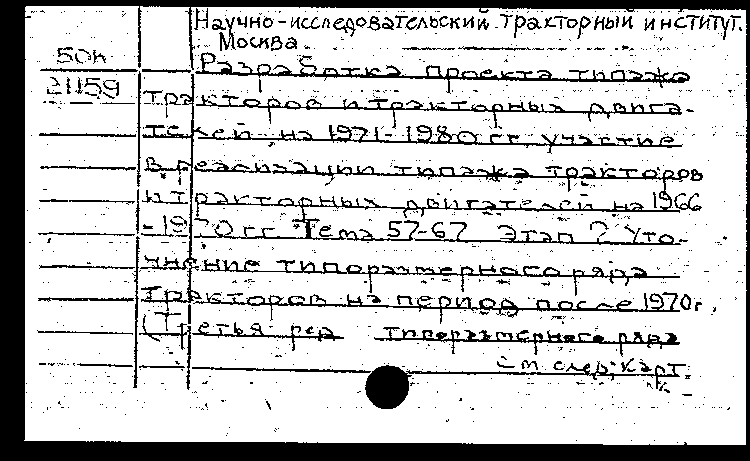 Научно-исследовательский тракторный институт.
Москва.
50к
21159
Разработка проекта типажа
тракторов и тракторных двига-
телей на 1971-1980 гг, участие
в реализации типажа тракторов
и тракторных двигателей на 1966
-1970 гг Тема 57-67 Этап 2 Уто-
чнение типоразмерного ряда
тракторов на период после 1970г.
(Третья ред типоразмерного ряда
См след. карт.